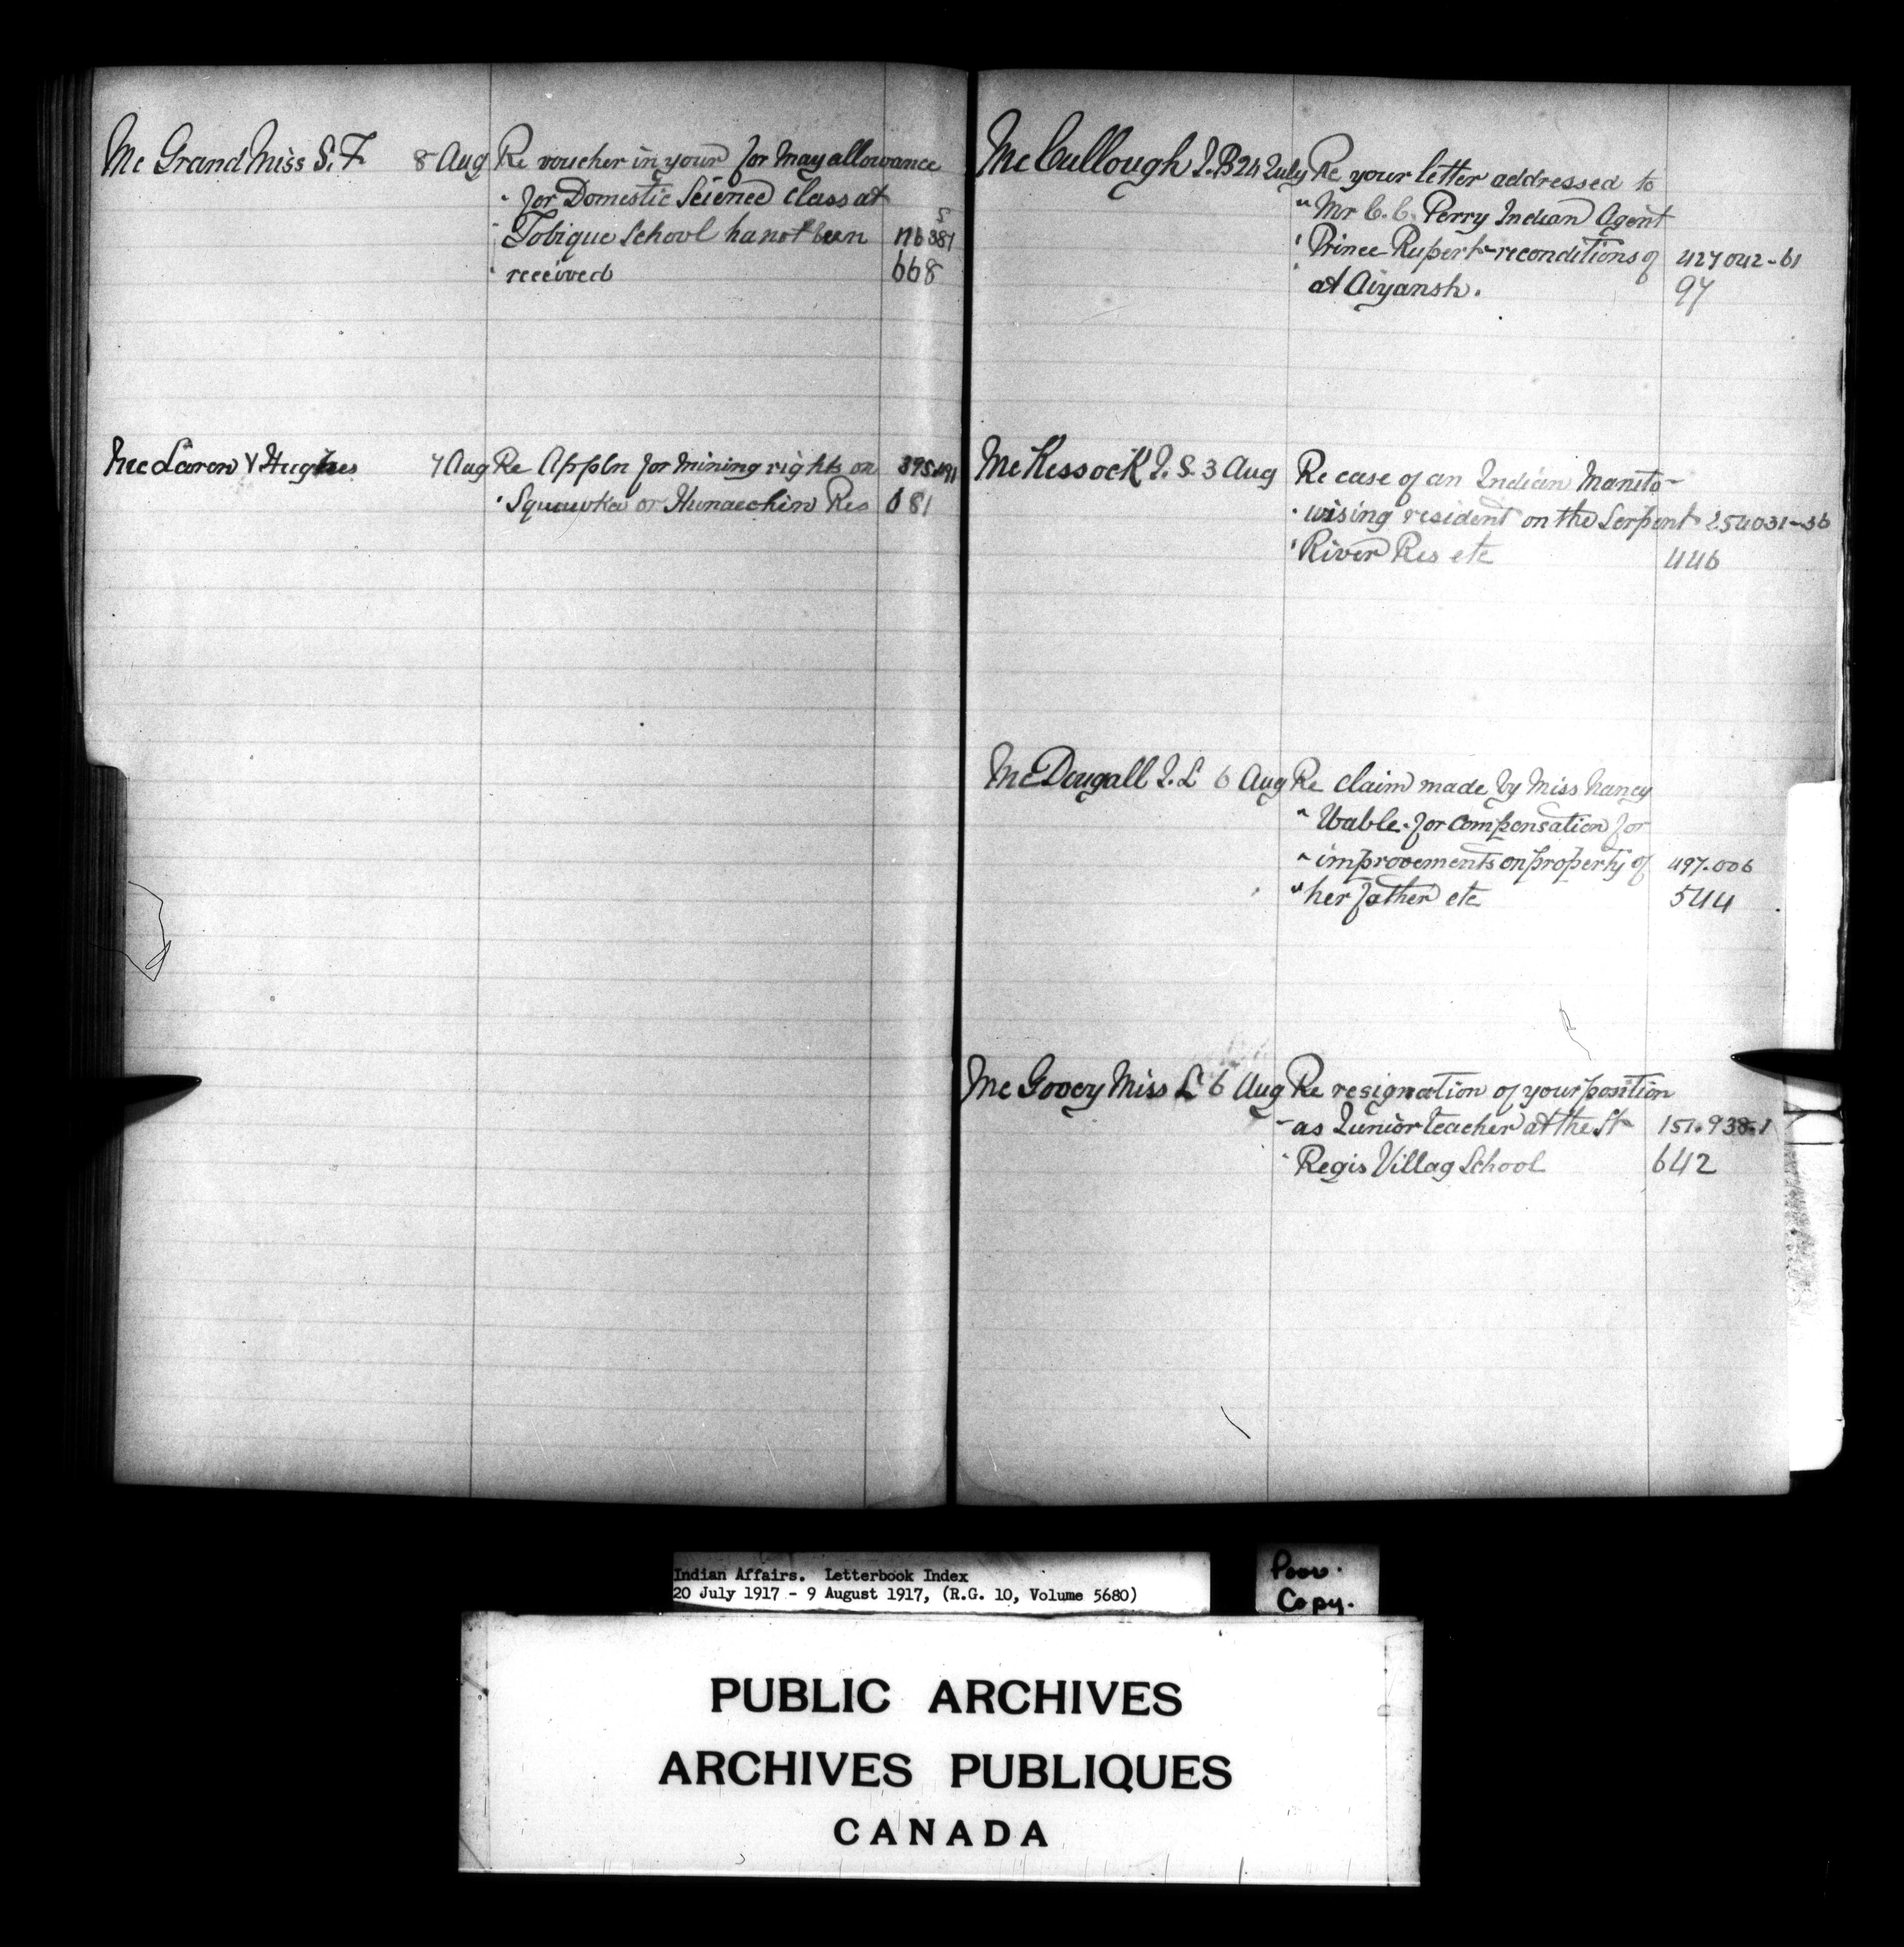 Mc Grand Miss S. F. 8 Aug Re voucher in your for May allowance
" for Domestic Science class at
" Tobique School ha not been 116381 5
" received 668
McLaren & Hughes 7 Aug Re Appln for mining rights on
" Squawka or Hunaechin Res 681
McCullough J.B 24 July Re your letter addressed to
" Mr C. C. Perry Indian Agent
" Prince Rupert - re conditions of 427042-61
" at Aiyansh. 97
McKessock J. S. 3 Aug Re case of an Indian Manito-
" wising resident on the Serpent 254031-36
" River Res etc 446
McDougall J. L 6 Aug Re claim made by Miss Nancy
" Wable for compensation for
" improvements on property of 497.006
" her father etc 544
Mc Govey Miss L 6 Aug Re resignation of your position
" as Junior teacher at the St 151.938-1
" Regis Villag School 642
Indian Affairs. Letterbook Index
20 July 1917 - 9 August 1917, (R.G. 10, Volume 5680)
Poor.
Copy.
PUBLIC ARCHIVES
ARCHIVES PUBLIQUES
CANADA